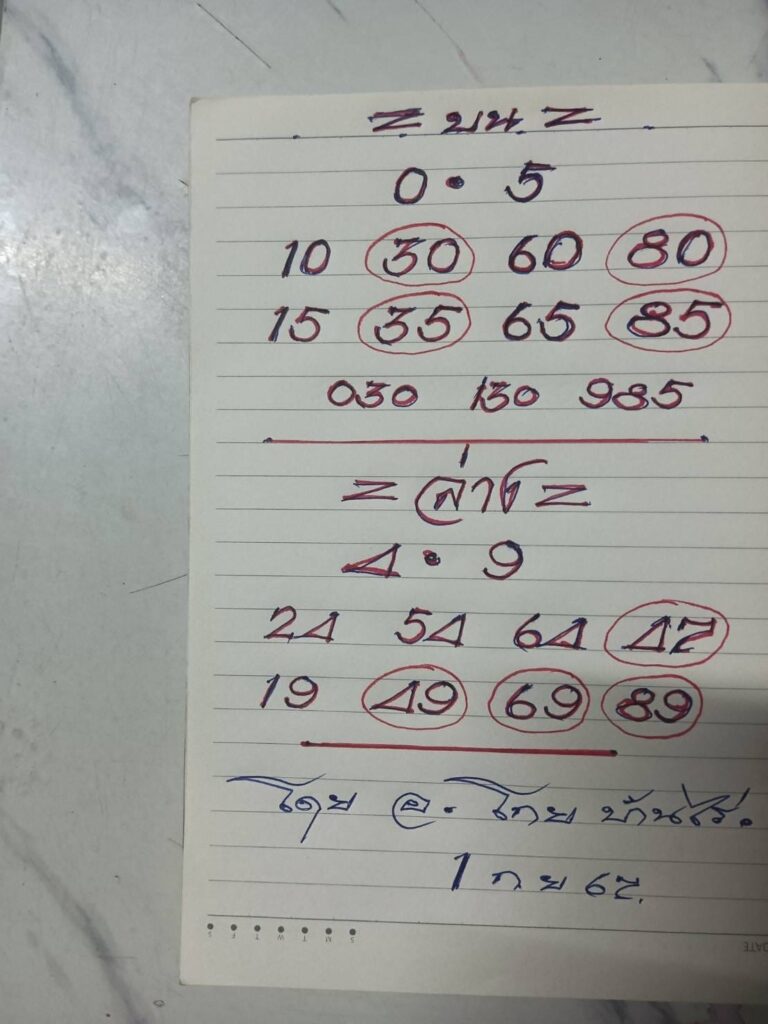 = บน =
0 • 5
10 30 60 80
15 35 65 85
030 130 985
= ล่าง =
4 • 9
24 54 64 47
19 49 69 89
โดย อ. โกย บ้านไร่.
1 กย 67.
S F T W T M S
DATE